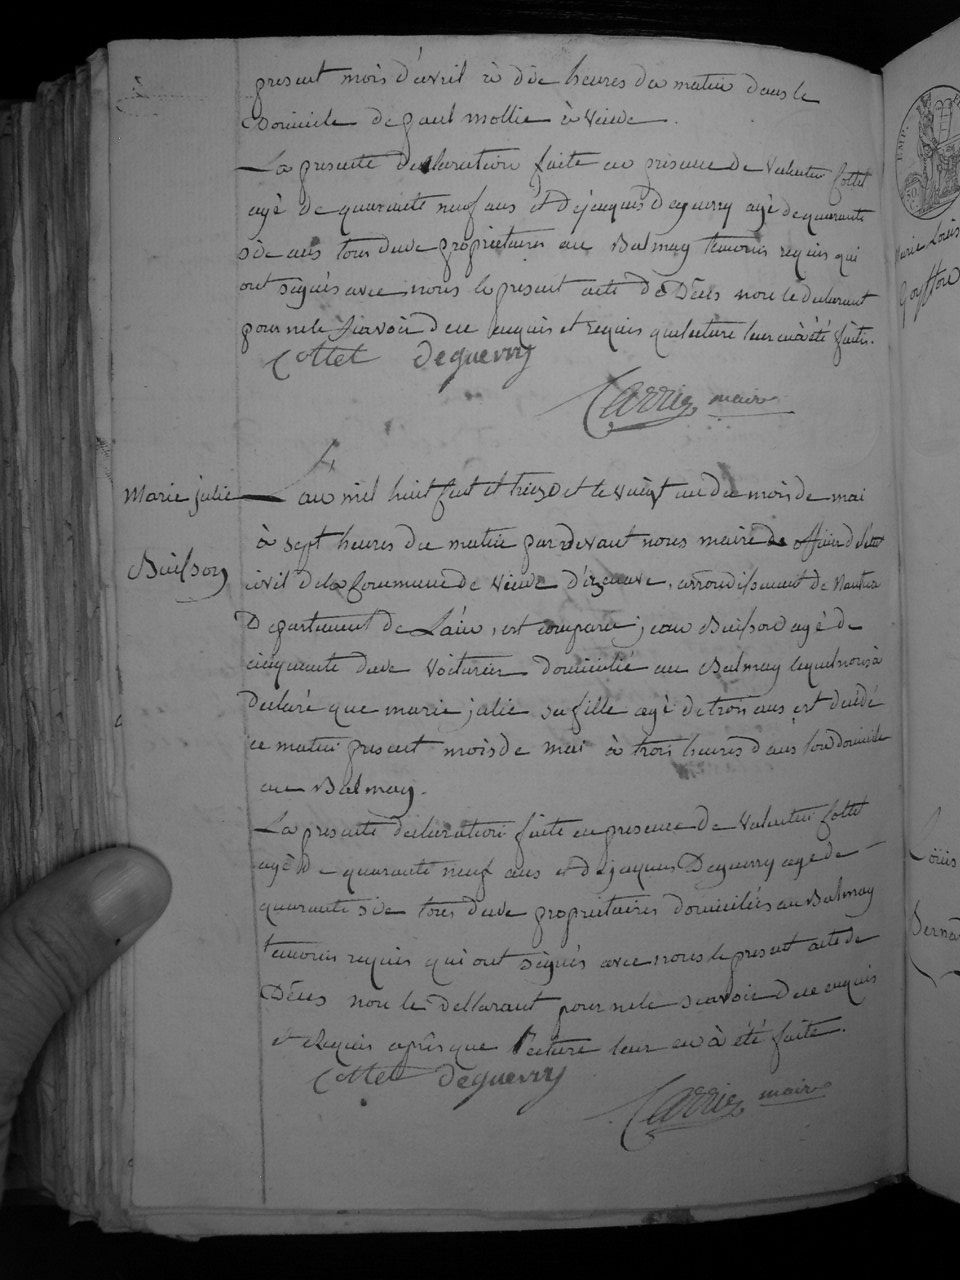 present mois d'avril à dix heures du matin dans le
Domicile de paul mollie à Vieux.
La presente declaration faite en presence de Valentin Cottet
agé de quarante neuf ans et de jaques Deguerry agé de quarante
six ans tous deux proprietaires au Balmay temoins requis qui
ont signés avec nous le present acte de Décès non le declarant
pour ne le sçavoir de ce enquis et requis que lecture leur en à été faite.
Cottet deguerry
Carrier maire
Marie julie
Buisson
L'an mil huit cent et treize et le vingt un du mois de mai
à sept heures du matin pardevant nous maire officier d'état
civil de la Commune de Vieux d'izenave, arrondissement de Nantua
Departement de L'ain, est comparu jean Buisson agé de
cinquante deux Voiturier domicilié au Balmay lequel nous à
declaré que marie julie sa fille agé de trois ans est décédé
ce matin present mois de mai à trois heures dans son domicile
au Balmay.
La presente declaration faite en presence de Valentin Cottet
agé de quarante neuf ans et de jaques Deguerry age de
quarante six tous deux proprietaires domiciliés au Balmay
temoins requis qui ont signés avec nous le present acte de
Décès non le declarant pour ne le sçavoir de ce enquis
et Requis après que lecture leur en à été faite.
Cottet deguerry
Carrier maire
EMP.
50.
Marie Louise
Goyffon
Loüis
Berna